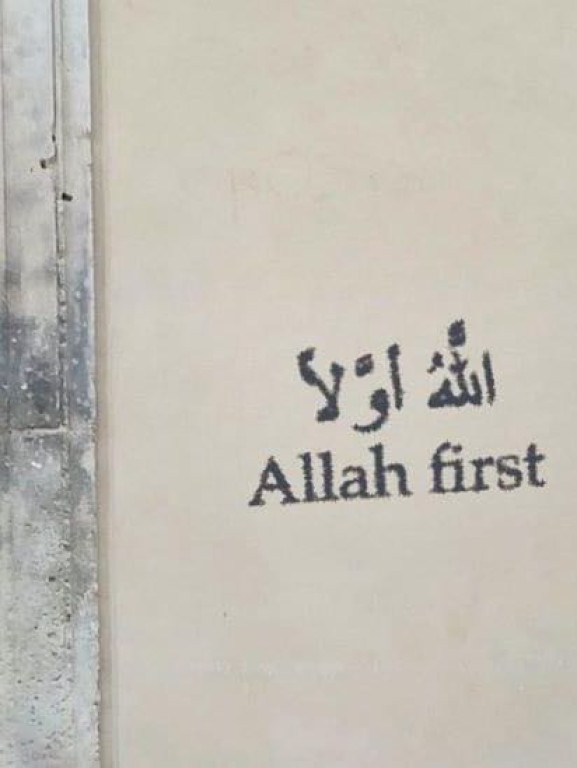 اللَّهُ أوَّلاً
Allah first